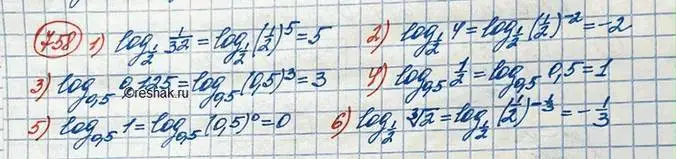 758 1) log_{1/2} 1/32 = log_{1/2} (1/2)^5 = 5 2) log_{1/2} 4 = log_{1/2} (1/2)^{-2} = -2
3) log_{0,5} 0,125 = log_{0,5} (0,5)^3 = 3 4) log_{0,5} 1/2 = log_{0,5} 0,5 = 1
©reshak.ru
5) log_{0,5} 1 = log_{0,5} (0,5)^0 = 0 6) log_{1/2} ∛2 = log_{1/2} (1/2)^{-1/3} = -1/3